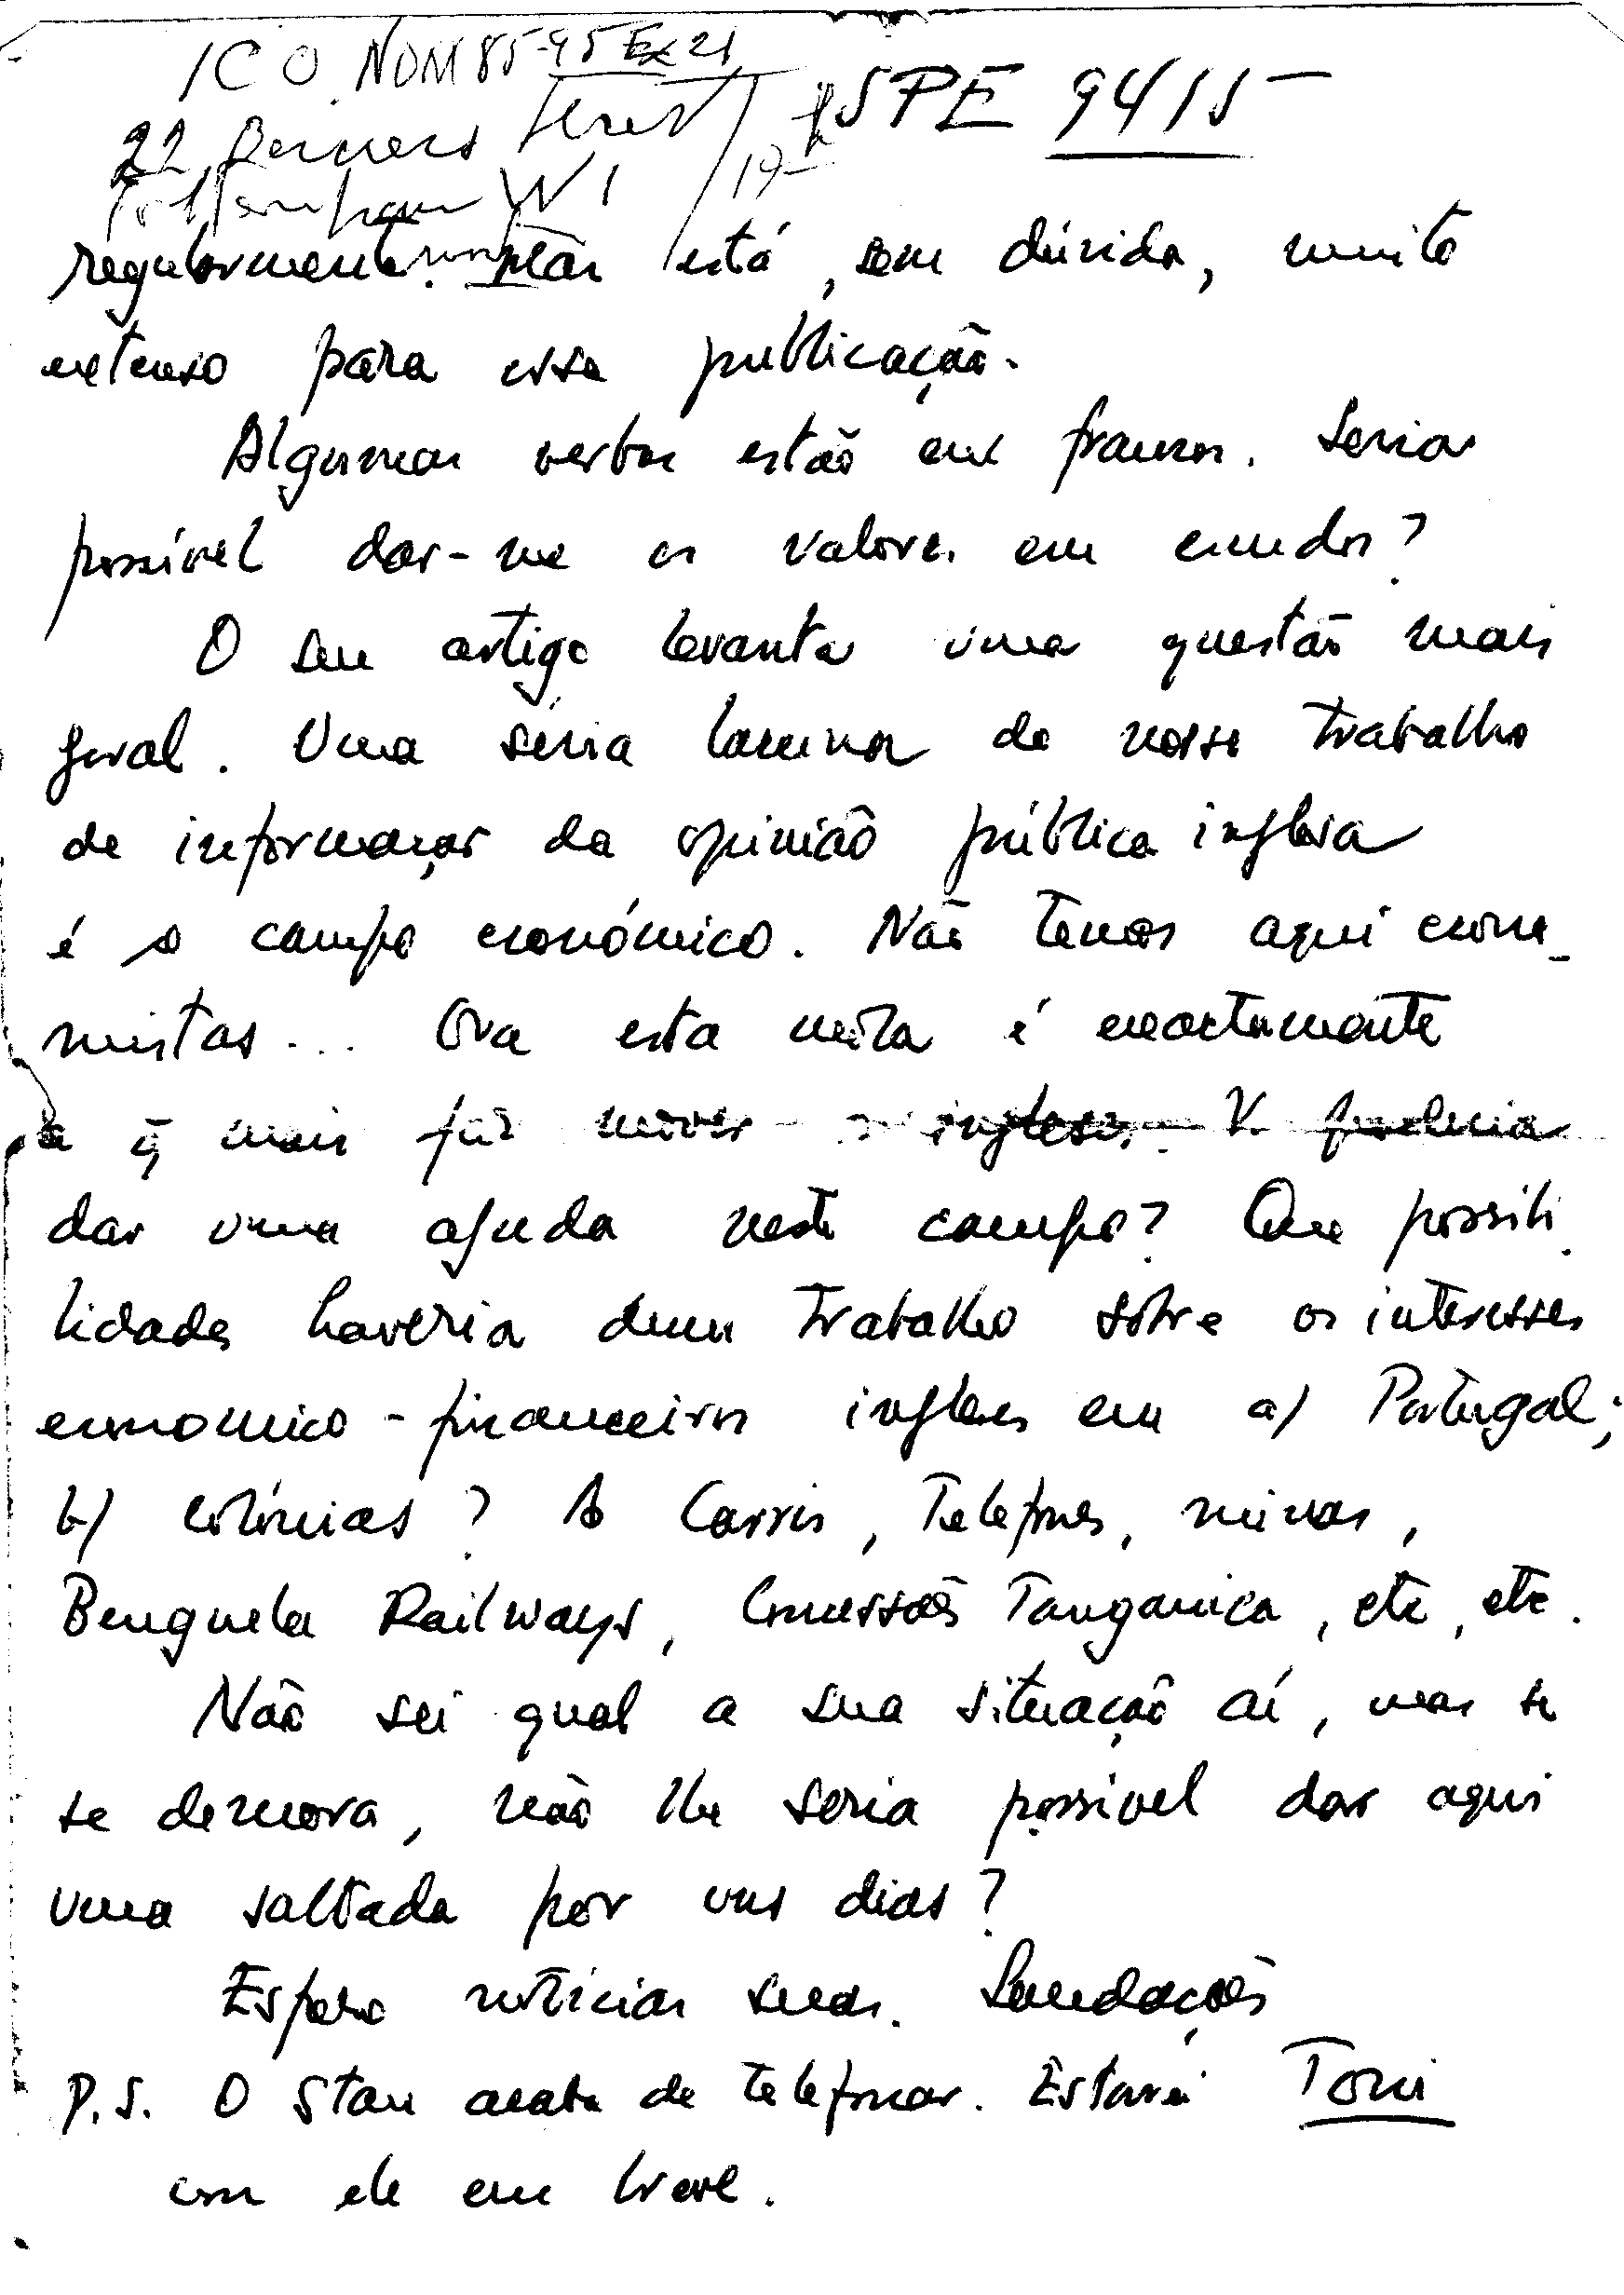 ICO. NOM 85-95 Ex 21
SPE 9415
22 Berners Street
W1
19-
regularmente. Mas está, sem dúvida, muito
extenso para essa publicação.
Algumas verbas estão em francos. Seria
possível dar-me os valores em escudos?
O seu artigo levanta uma questão mais
geral. Uma séria lacuna do nosso trabalho
de informação da opinião pública inglesa
é o campo económico. Não temos aqui econo-
mistas... Ora esta nota é exactamente
a q̃ mais faz mover os ingleses. V. poderia
dar uma ajuda neste campo? Que possibi-
lidades haveria dum trabalho sôbre os interesses
economico-financeiros ingleses em a) Portugal;
b) colónias? A Carris, Telefones, minas,
Benguela Railways, Concessões Tanganica, etc, etc.
Não sei qual a sua situação aí, mas se
se demora, não lhe seria possível dar aqui
uma saltada por uns dias?
Espero notícias suas. Saudações
Toni
P.S. O Stan acaba de telefonar. Estarei
com ele em breve.